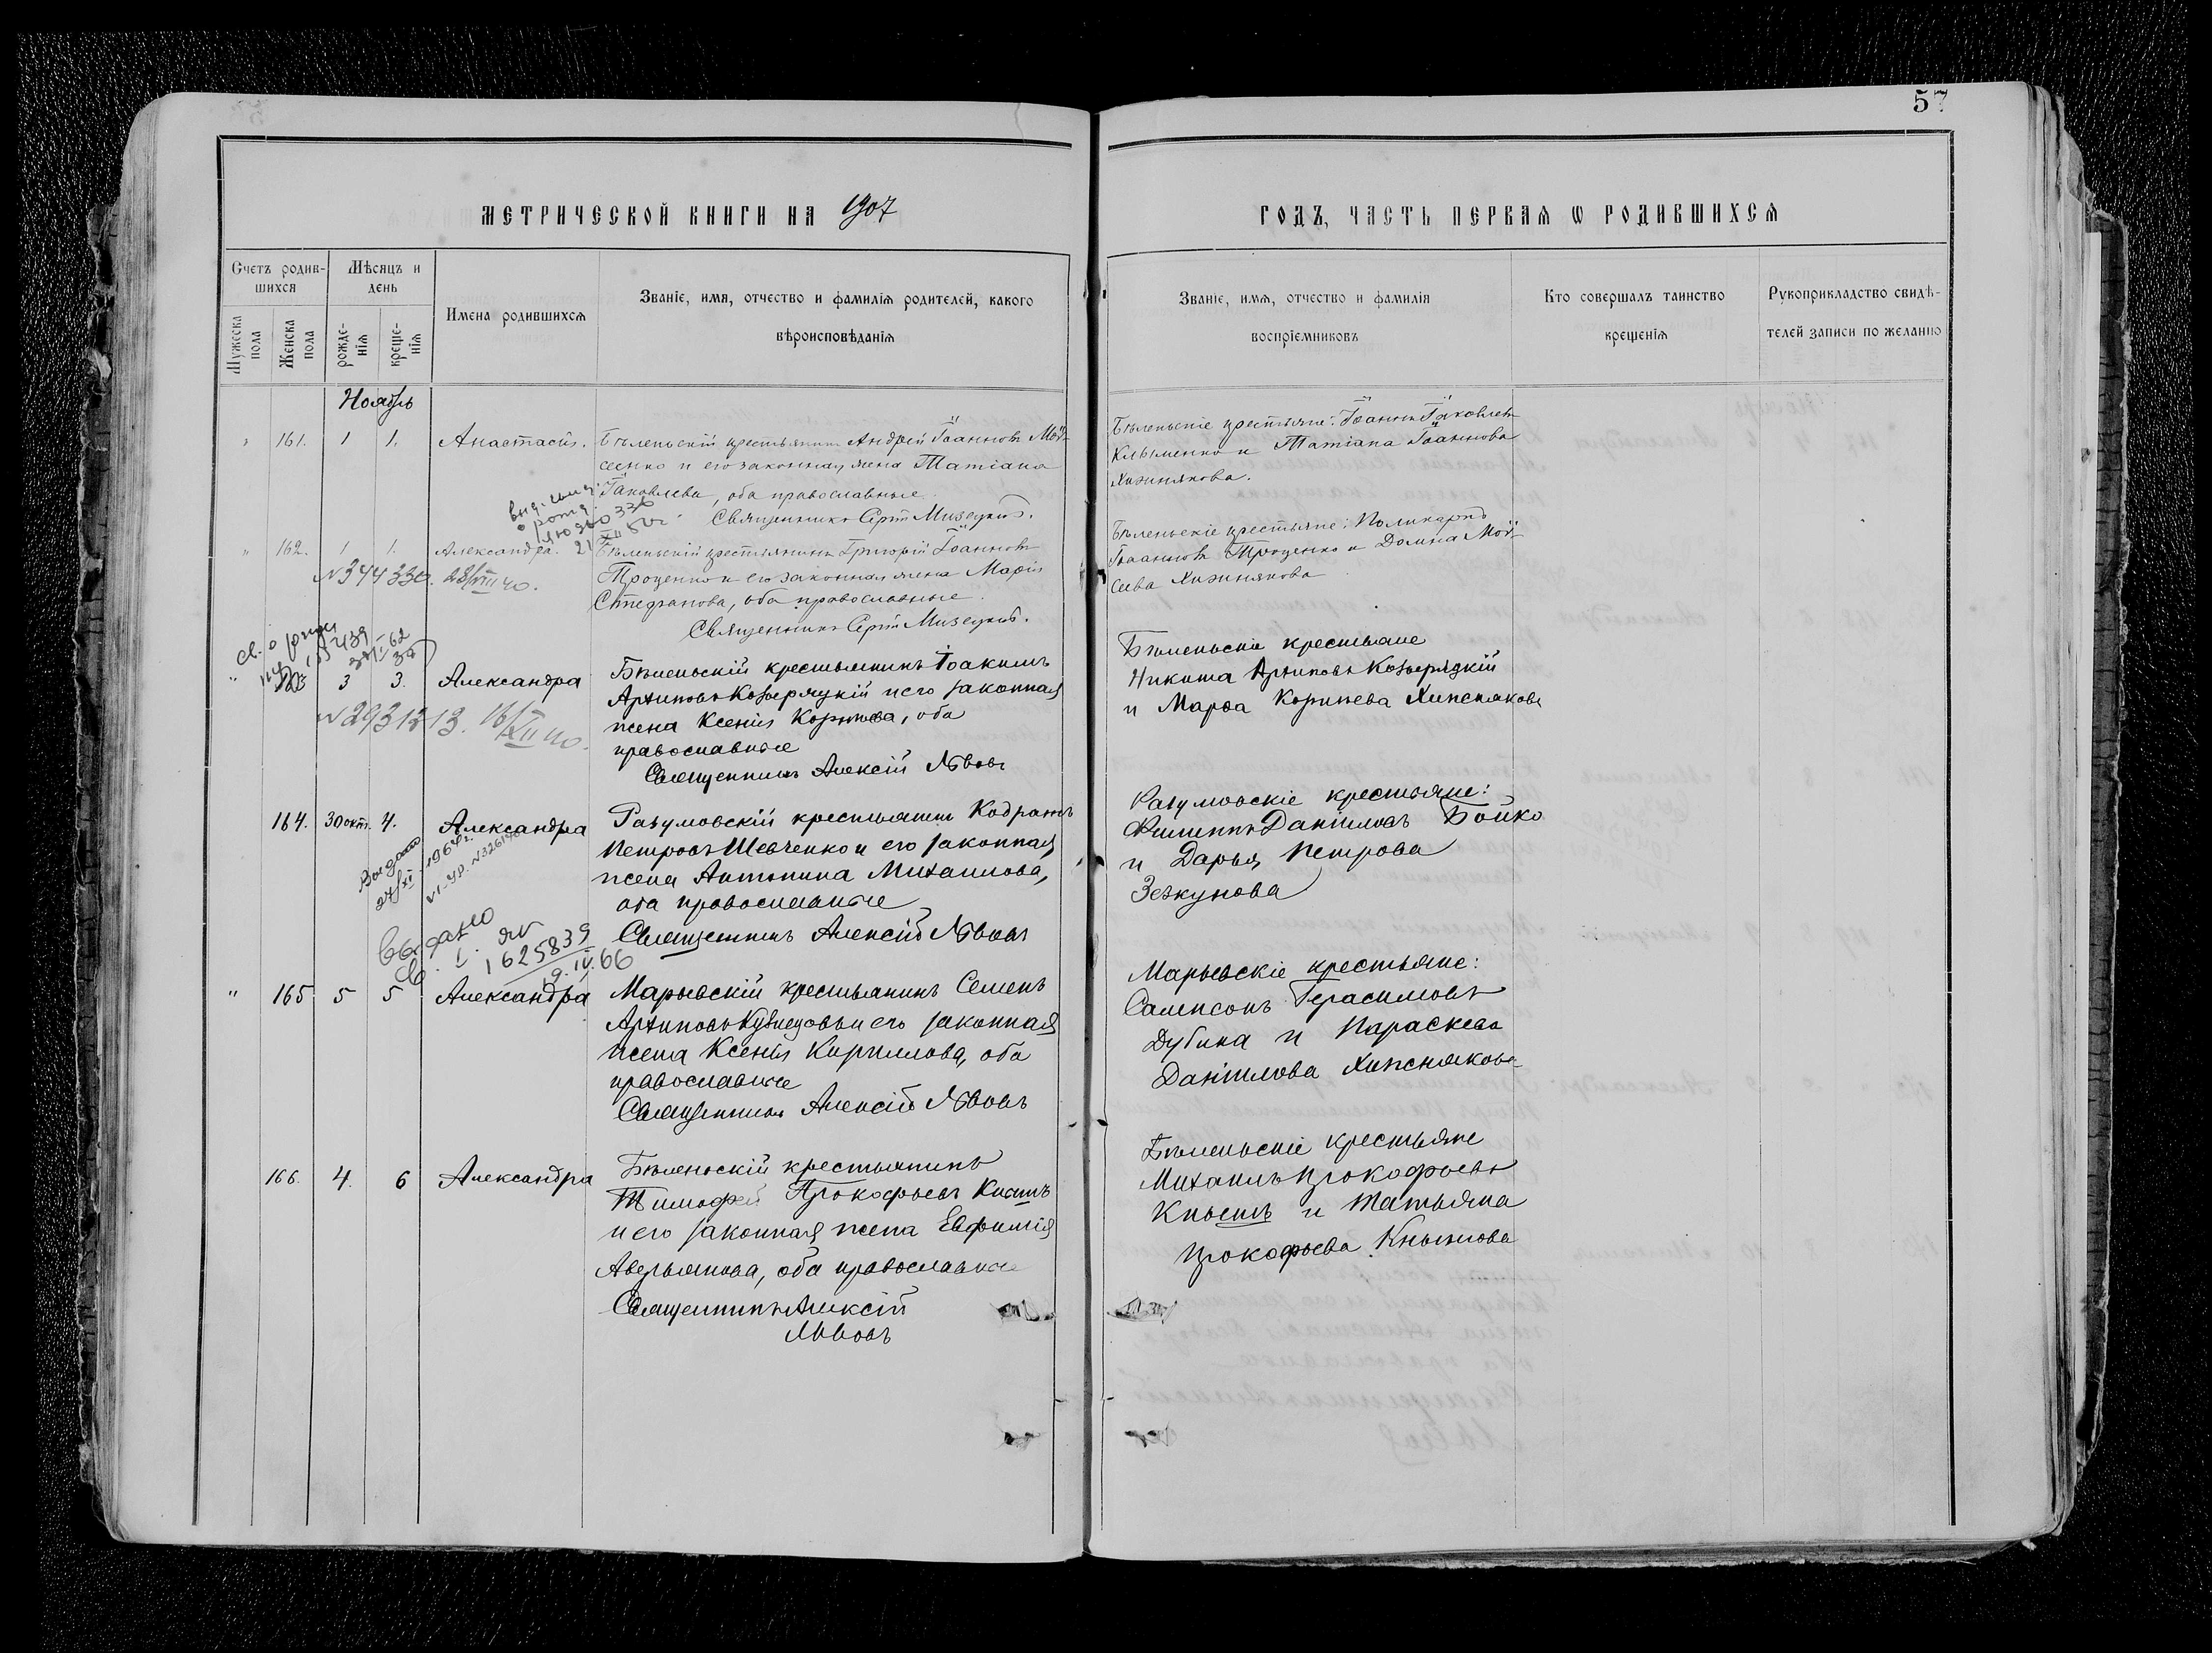 57
МЕТРИЧЕСКОЙ КНИГИ НА 1907
ГОДЪ, ЧАСТЬ ПЕРВАЯ Ѡ РОДИВШИХСЯ
Счетъ родив-
шихся
Мѣсяцъ и
день
Имена родившихся
Званіе, имя, отчество и фамилія родителей, какого
вѣроисповѣданія
Мужеска
пола
Женска
пола
рожде-
нія
креще-
нія
Званіе, имя, отчество и фамилія
воспріемниковъ
Кто совершалъ таинство
крещенія
Рукоприкладство свидѣ-
телей записи по желанію
Ноябрь
" 161. 1 1. Анастасія. Бѣленьскій крестьянинъ Андрей Іоанновъ Мой-
сенко и его законная жена Татіана
Іаковлева, оба православные.
Священникъ Сергій
Бѣленьскіе крестьяне: Іоаннъ Іаковлевъ
Клыменко и Татіана Іоаннова
Хижнякова.
" 162. 1 1. Александра. Бѣленьскій крестьянинъ Григорій Іоанновъ
Троценко и его законная жена Марія
Стефанова, оба православные.
Священникъ Сергій
N344330. 28/VII 40.
Бѣленьскіе крестьяне: Поликарпъ
Іоанновъ Троценко и Домна Мой-
сеева Хижнякова
" 3 3. Александра Бѣленьскій крестьянинъ Іоакимъ
Архиповъ Козыряцкій и его законная
жена Ксенія Корнѣева, оба
православные
Священникъ Алексій Львовъ
16/XII 40.
Бѣленьскіе крестьяне
Никита Архиповъ Козыряцкій
и Марѳа Корнѣева Хижнякова
164. 30 окт. 4. Александра Разумовскій крестьянинъ Кодратъ
Петровъ Шевченко и его законная
жена Антонина Михаилова,
оба православные
Священникъ Алексій Львовъ
Выдано
27/XI 1964 г.
Разумовскіе крестьяне:
Филиппъ Даніиловъ Бойко
и Дарья Петрова
Зезкунова
выдано
1625839
19.IV.66
" 165 5 5 Александра Марьевскій крестьянинъ Семенъ
Архиповъ Кузнецовъ и его законная
жена Ксенія Кириллова, оба
православные
Священникъ Алексій Львовъ
Марьевскіе крестьяне:
Сампсонъ Герасимовъ
Дубина и Параскева
Даніилова Хижнякова
166. 4. 6 Александра Бѣленьскій крестьянинъ
Тимофей Прокофьевъ
и его законная жена Евфимія
Аверьянова, оба православные
Священникъ Алексій
Львовъ
Бѣленьскіе крестьяне
Михаилъ Прокофьевъ
и Татьяна
Прокофьева